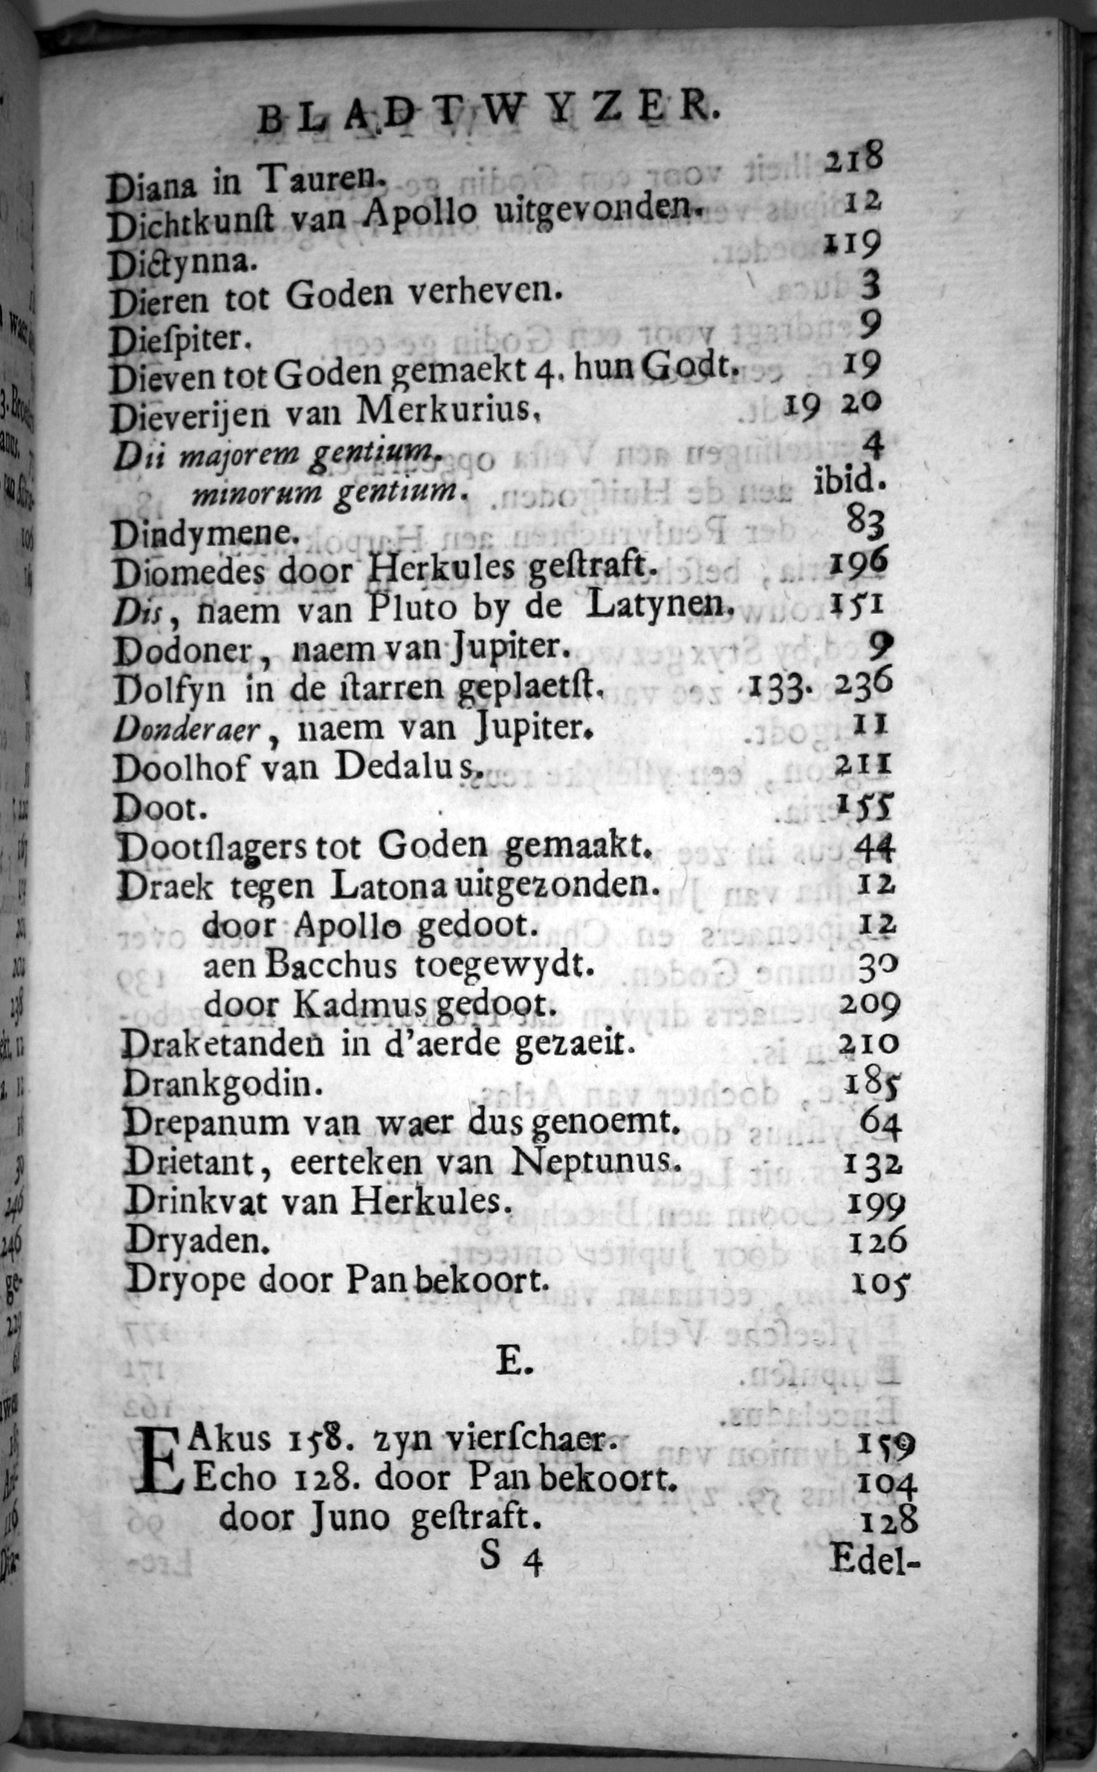 BLADTWYZER.
Diana in Tauren. 218
Dichtkunſt van Apollo uitgevonden. 12
Dictynna. 119
Dieren tot Goden verheven. 3
Dieſpiter. 9
Dieven tot Goden gemaekt 4. hun Godt. 19
Dieverijen van Merkurius. 19 20
Dii majorem gentium. 4
minorum gentium. ibid.
Dindymene. 83
Diomedes door Herkules geſtraft. 196
Dis, naem van Pluto by de Latynen. 151
Dodoner, naem van Jupiter. 9
Dolfyn in de ſtarren geplaetſt. 133. 236
Donderaer, naem van Jupiter. 11
Doolhof van Dedalus. 211
Doot. 155
Dootſlagers tot Goden gemaakt. 44
Draek tegen Latona uitgezonden. 12
door Apollo gedoot. 12
aen Bacchus toegewydt. 30
door Kadmus gedoot. 209
Draketanden in d'aerde gezaeit. 210
Drankgodin. 185
Drepanum van waer dus genoemt. 64
Drietant, eerteken van Neptunus. 132
Drinkvat van Herkules. 199
Dryaden. 126
Dryope door Pan bekoort. 105
E.
EAkus 158. zyn vierſchaer. 159
Echo 128. door Pan bekoort. 104
door Juno geſtraft. 128
S 4 Edel-